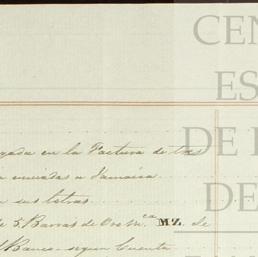 CEN
ES
DE
gada en la Factura de
enviadas a Jamaica
sus letras
5. Barras de Oro M.ca MZ. de
Banco segun Cuenta